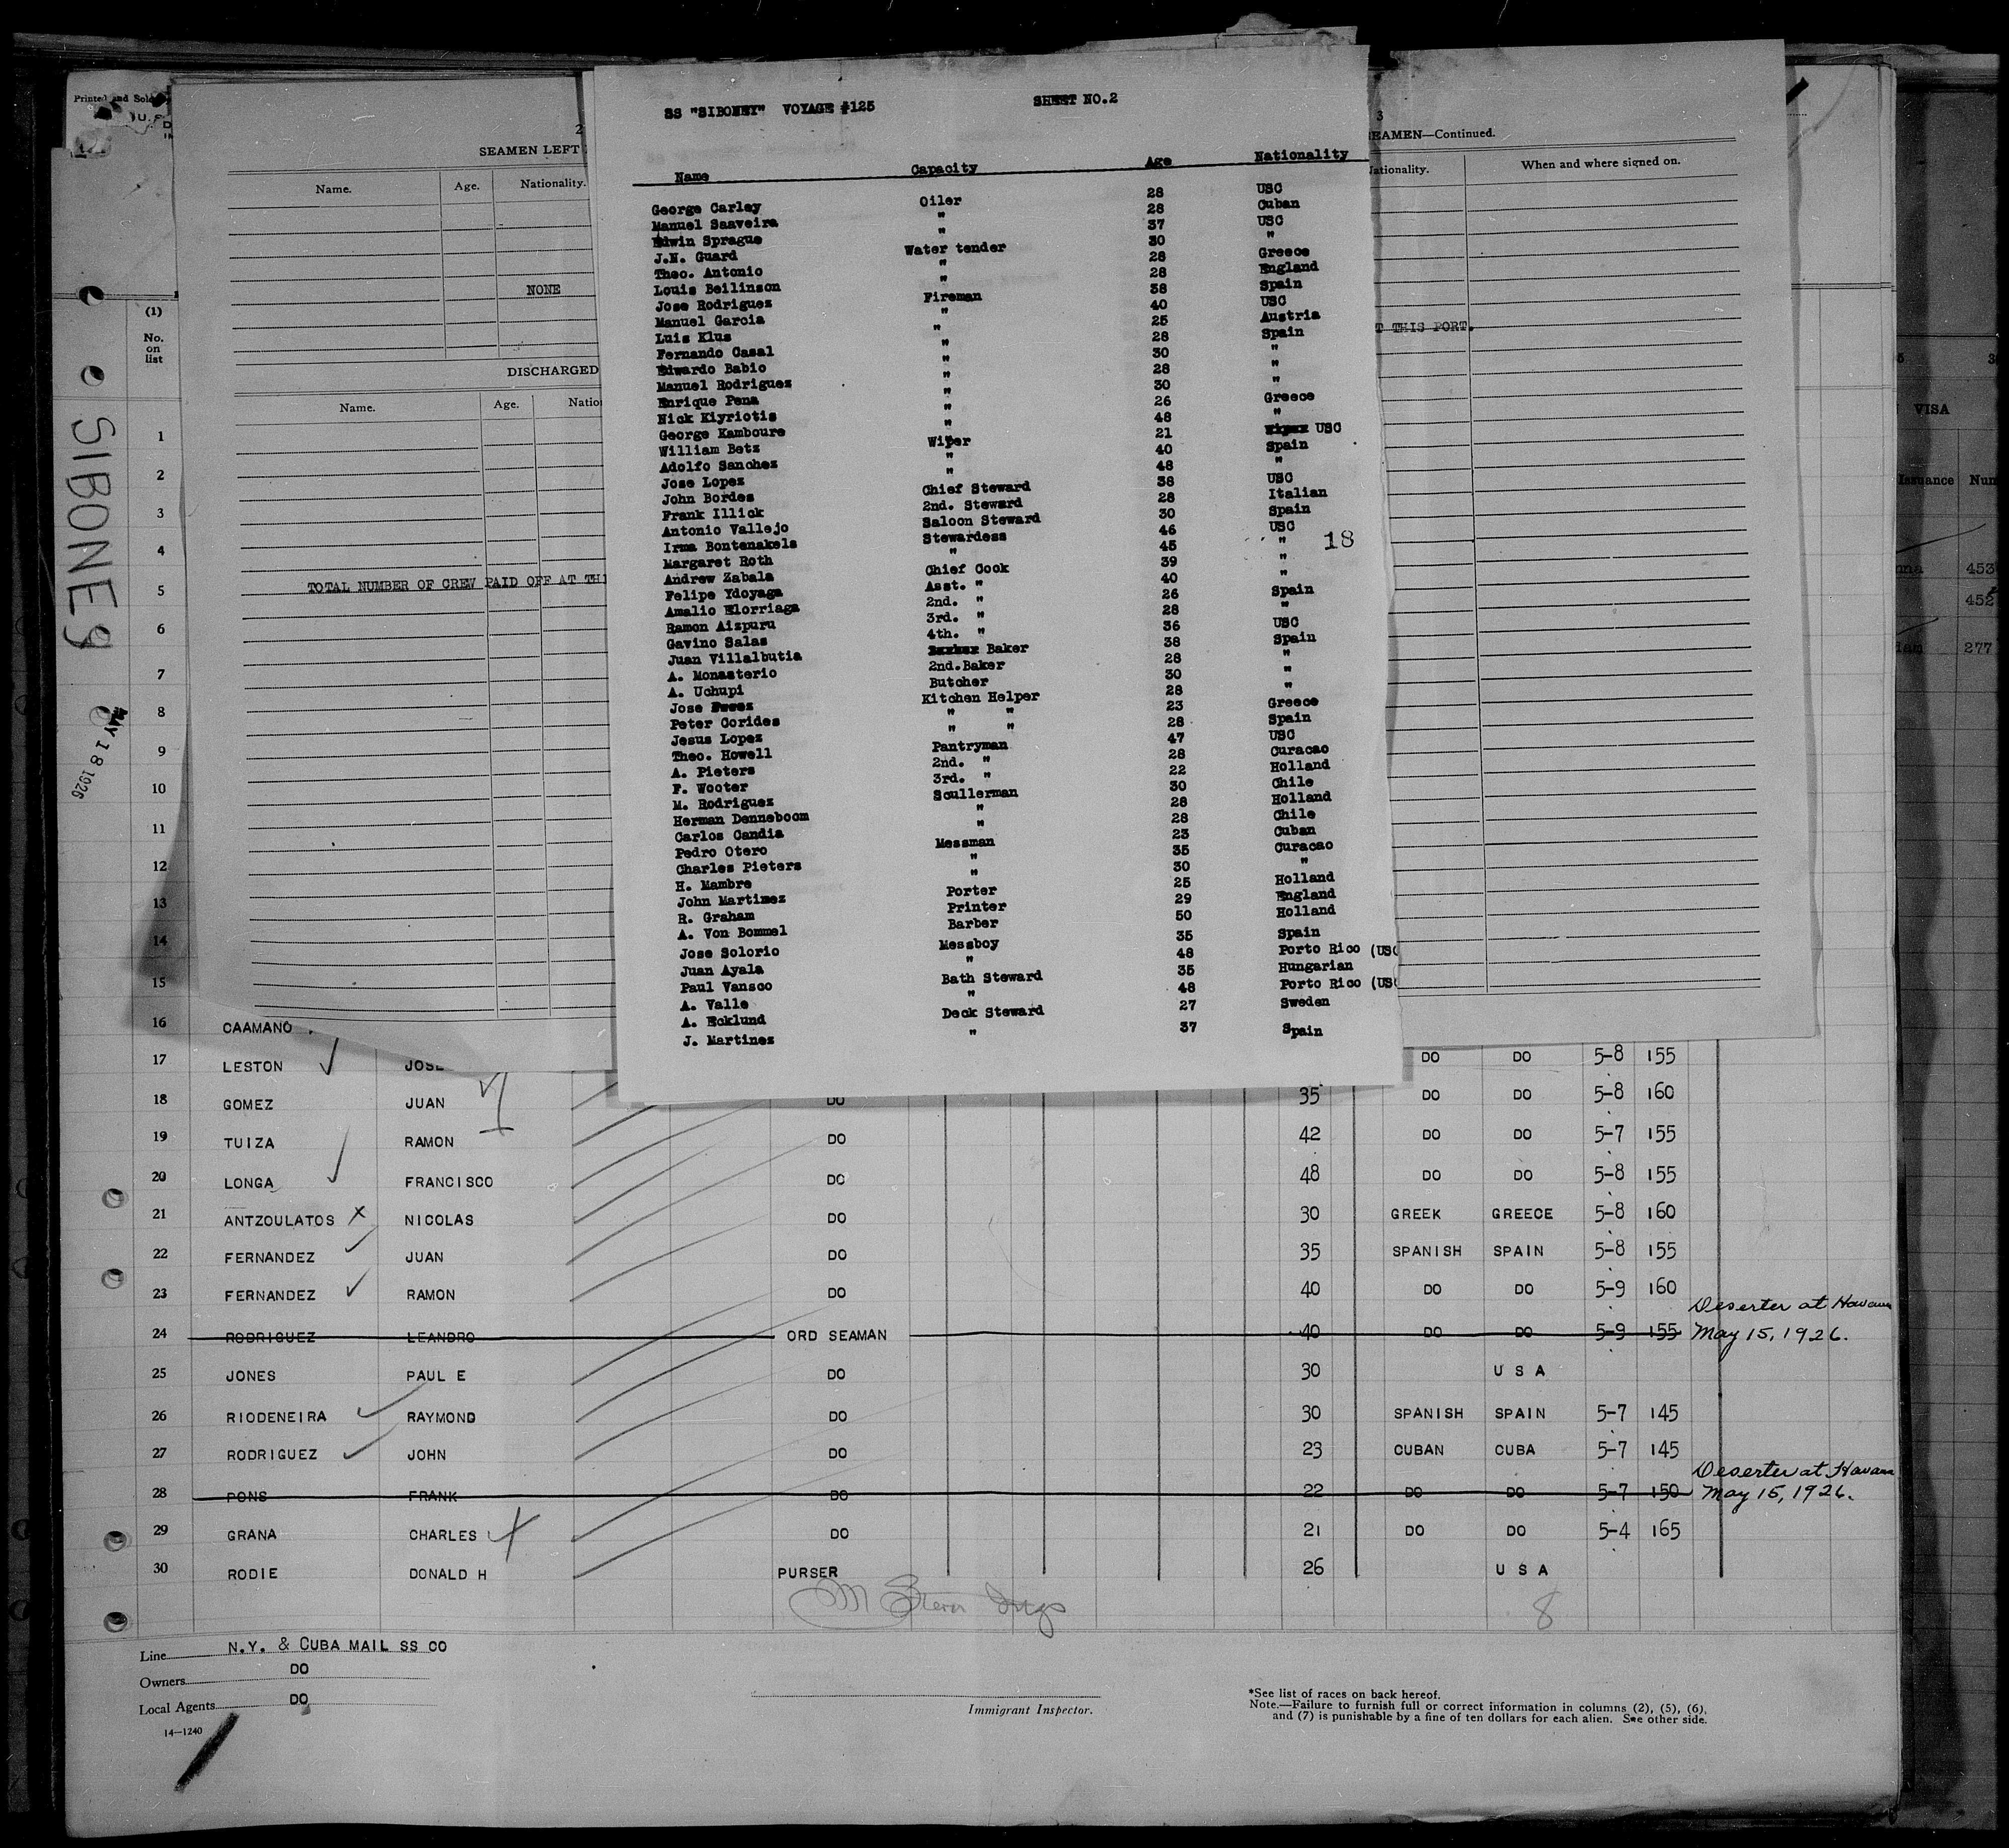 SS "SIBONEY" VOYAGE #125 SHEET NO.2
Name Capacity Age Nationality
George Carley Oiler 28 USC
Manuel Saaveira " 28 Cuban
Edwin Sprague " 37 USC
J.N. Guard Water tender 30 "
Theo. Antonio " 28 Greece
Louis Beilinson " 28 England
Jose Rodriguez Fireman 38 Spain
Manuel Garcia " 40 USC
Luis Klus " 25 Austria
Fernando Casal " 28 Spain
Edwardo Babio " 30 "
Manuel Rodriguez " 28 "
Enrique Pena " 30 "
Nick Kiyriotis " 26 Greece
George Kamboure " 48 "
William Betz Wiper 21 USC
Adolfo Sanchez " 40 Spain
Jose Lopez " 48 "
John Bordes Chief Steward 38 USC
Frank Illick 2nd. Steward 28 Italian
Antonio Vallejo Saloon Steward 30 Spain
Irma Bontenakels Stewardess 46 USC
Margaret Roth " 45 " 18
Andrew Zabala Chief Cook 39 "
Felipe Ydoyaga Asst. " 40 "
Amalio Elorriaga 2nd. " 26 Spain
Ramon Aizpuru 3rd. " 28 "
Gavino Salas 4th. " 36 USC
Juan Villalbutia Baker 38 Spain
A. Monasterio 2nd.Baker 28 "
A. Uchupi Butcher 30 "
Jose Kitchen Helper 28 "
Peter Corides " " 23 Greece
Jesus Lopez " " 28 Spain
Theo. Howell Pantryman 47 USC
A. Pieters 2nd. " 28 Curacao
F. Wooter 3rd. " 22 Holland
M. Rodriguez Scullerman 30 Chile
Herman Denneboom " 28 Holland
Carlos Candia " 28 Chile
Pedro Otero Messman 23 Cuban
Charles Pieters " 35 Curacao
H. Mambre " 30 "
John Martinez Porter 25 Holland
R. Graham Printer 29 England
A. Von Bommel Barber 50 Holland
Jose Solorio Messboy 35 Spain
Juan Ayala " 48 Porto Rico (USC
Paul Vansco Bath Steward 35 Hungarian
A. Valle " 48 Porto Rico (USC
A. Ecklund Deck Steward 27 Sweden
J. Martinez " 37 Spain
Printed and Sold
2
SEAMEN LEFT
Name. Age. Nationality.
NONE
DISCHARGED
Name. Age. Natio
TOTAL NUMBER OF CREW PAID OFF AT THI
3
SEAMEN—Continued.
Nationality. When and where signed on.
T THIS PORT.
VISA
Issuance Num
453
452
277
SIBONEY
MAY 18 1926
(1)
No. on list
1
2
3
4
5
6
7
8
9
10
11
12
13
14
15
16 CAAMANO
17 LESTON JOSE DO DO 5-8 155
18 GOMEZ JUAN DO 35 DO DO 5-8 160
19 TUIZA RAMON DO 42 DO DO 5-7 155
20 LONGA FRANCISCO DO 48 DO DO 5-8 155
21 ANTZOULATOS X NICOLAS DO 30 GREEK GREECE 5-8 160
22 FERNANDEZ JUAN DO 35 SPANISH SPAIN 5-8 155
23 FERNANDEZ RAMON DO 40 DO DO 5-9 160
24 RODRIGUEZ LEANDRO ORD SEAMAN 40 DO DO 5-9 155 Deserter at Havana May 15, 1926.
25 JONES PAUL E DO 30 U S A
26 RIODENEIRA RAYMOND DO 30 SPANISH SPAIN 5-7 145
27 RODRIGUEZ JOHN DO 23 CUBAN CUBA 5-7 145
28 PONS FRANK DO 22 DO DO 5-7 150 Deserter at Havana May 15, 1926.
29 GRANA CHARLES DO 21 DO DO 5-4 165
30 RODIE DONALD H PURSER 26 U S A
8
Line N.Y. & CUBA MAIL SS CO
Owners DO
Local Agents DO
14—1240
Immigrant Inspector.
*See list of races on back hereof.
Note.—Failure to furnish full or correct information in columns (2), (5), (6),
and (7) is punishable by a fine of ten dollars for each alien. See other side.